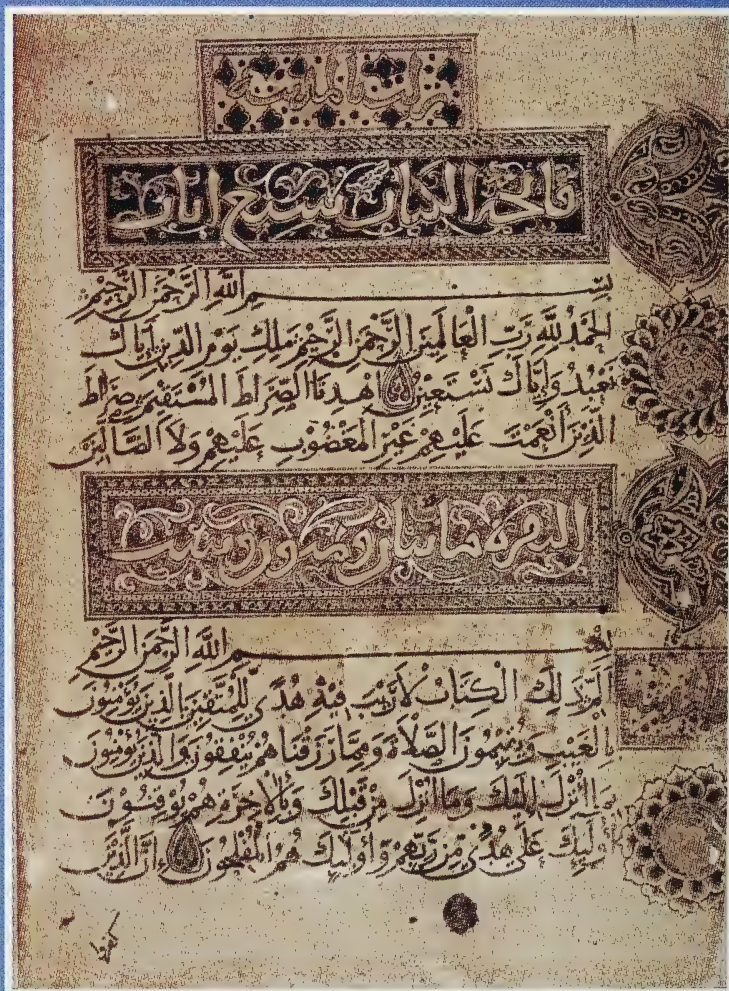 نزلت بالمدينة
فاتحة الكتاب سبع ايات
بِسْمِ اللَّهِ الرَّحْمَنِ الرَّحِيْمِ
الحَمْدُ لِلَّهِ رَبِّ الْعَالَمِيْنَ الرَّحْمَنِ الرَّحِيْمِ مَلِكِ يَوْمِ الدِّيْنِ اِيَّاكَ
نَعْبُدُ وَاِيَّاكَ نَسْتَعِيْنُ اهْدِنَا الصِّرَاطَ الْمُسْتَقِيْمَ صِرَاطَ
الَّذِيْنَ أَنْعَمْتَ عَلَيْهِمْ غَيْرِ الْمَغْضُوْبِ عَلَيْهِمْ وَلَا الضَّالِّيْنَ
البقرة مائتان
بِسْمِ اللَّهِ الرَّحْمَنِ الرَّحِيْمِ
الَمِّ ذَلِكَ الْكِتَابُ لَا رَيْبَ فِيْهِ هُدًى لِلْمُتَّقِيْنَ الَّذِيْنَ يُؤْمِنُوْنَ
بِالْغَيْبِ وَيُقِيْمُوْنَ الصَّلَاةَ وَمِمَّا رَزَقْنَاهُمْ يُنْفِقُوْنَ وَالَّذِيْنَ يُؤْمِنُوْنَ
بِمَا أُنْزِلَ إِلَيْكَ وَمَا أُنْزِلَ مِنْ قَبْلِكَ وَبِالْآخِرَةِ هُمْ يُوْقِنُوْنَ
أُوْلَئِكَ عَلَى هُدًى مِنْ رَبِّهِمْ وَأُوْلَئِكَ هُمُ الْمُفْلِحُوْنَ إِنَّ الَّذِيْنَ